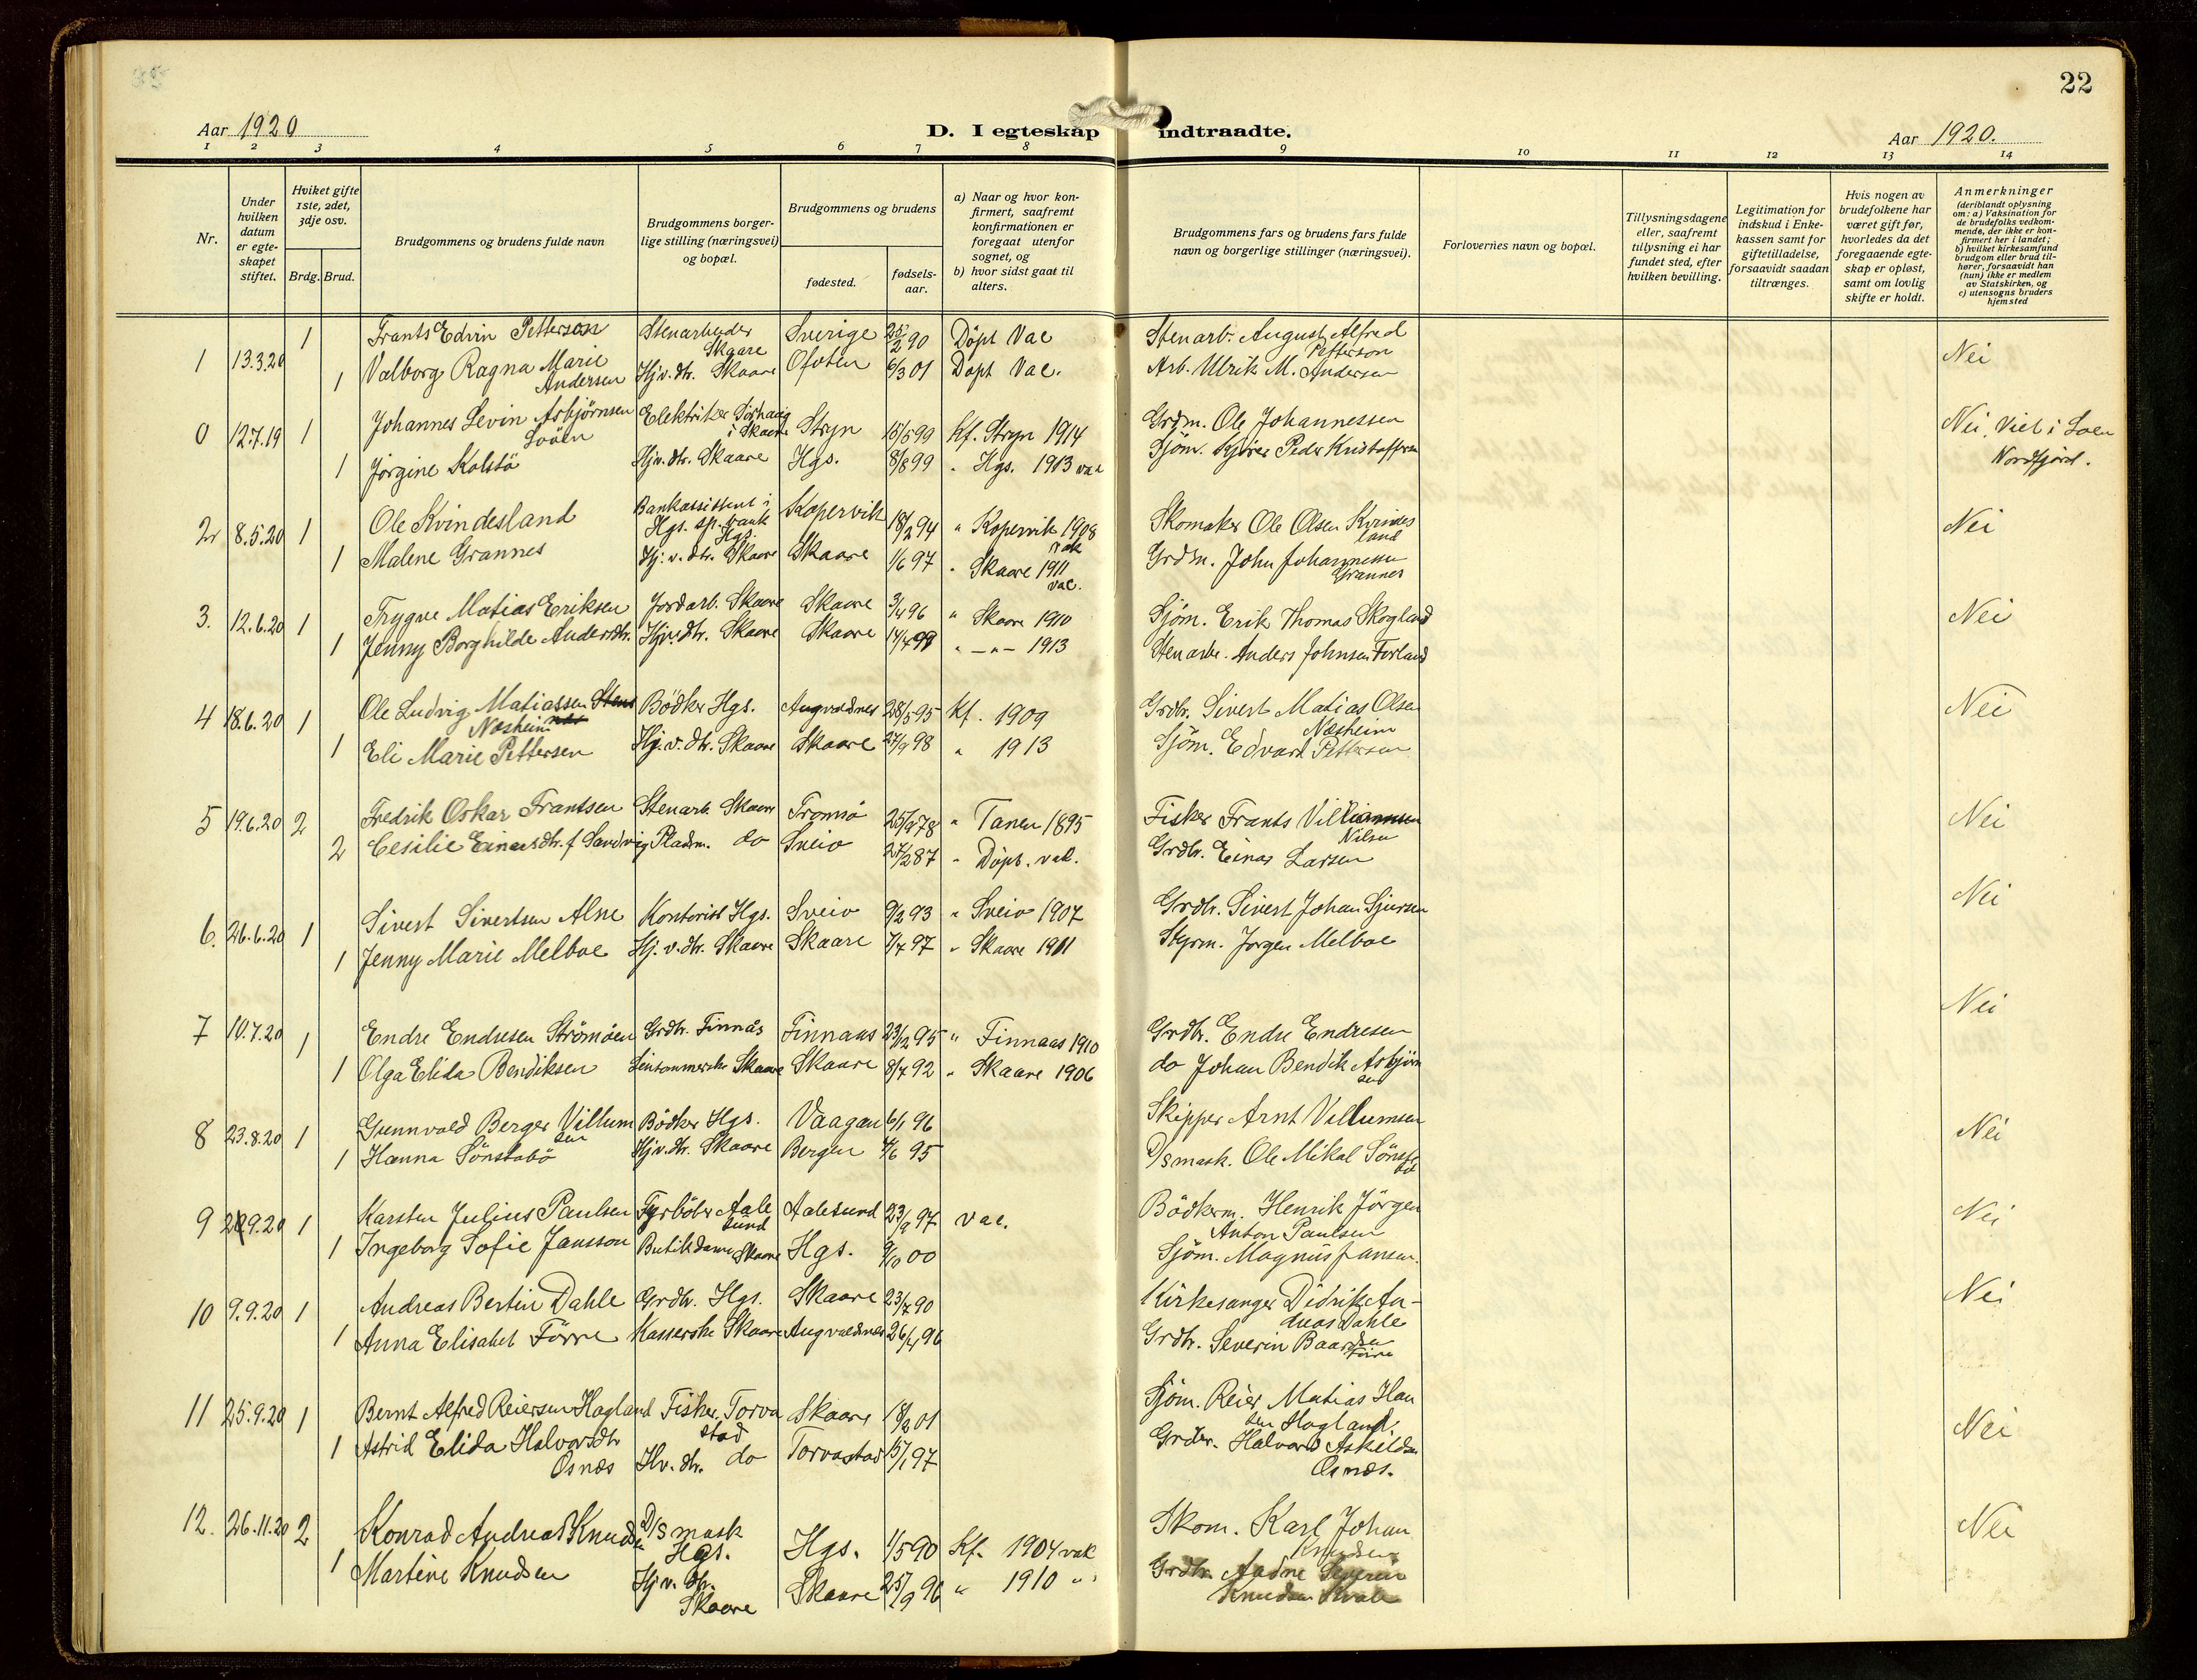 22
Aar 1920
D. I egteskap indtraadte.
Aar 1920.
1 2 3 4 5 6 7 8 9 10 11 12 13 14
Nr.
Under hvilken datum er egte-skapet stiftet.
Hvilket gifte 1ste, 2det, 3dje osv.
Brdg. Brud.
Brudgommens og brudens fulde navn
Brudgommens borger-lige stilling (næringsvei) og bopæl.
Brudgommens og brudens
fødested.
fødsels-aar.
a) Naar og hvor kon-firmert, saafremt konfirmationen er foregaat utenfor sognet, og
b) hvor sidst gaat til alters.
Brudgommens fars og brudens fars fulde navn og borgerlige stillinger (næringsvei).
Forlovernes navn og bopæl.
Tillysningsdagene eller, saafremt tillysning ei har fundet sted, efter hvilken bevilling.
Legitimation for indskud i Enke-kassen samt for giftetilladelse, forsaavidt saadan tiltrænges.
Hvis nogen av brudefolkene har været gift før, hvorledes da det foregaaende egte-skap er opløst, samt om lovlig skifte er holdt.
Anmerkninger (deriblandt oplysning om: a) Vaksination for de brudefolks vedkom-mende, der ikke er kon-firmert her i landet; b) hvilket kirkesamfund brudgom eller brud til-hører, forsaavidt han (hun) ikke er medlem av Statskirken, og c) utensogns bruders hjemsted
1 13.3.20 1 Frants Edvin Petterson Stenarbeider Skaare Sverige 25/2 90 Døpt Vac Stenarb. August Alfred Petterson Nei
1 Valborg Ragna Marie Andersen Hjv. dtr. Skaare Ofoten 6/3 01 Døpt Vac. Arb. Ulrik M. Andersen
0 12.7.19 1 Johannes Levin Asbjørnsen Loöen Elektriker Sörhaug i Skaare Stryn 15/5 99 Kf. Stryn 1914 Grdm. Ole Johannessen Nei, Viet i Loen Nordfjord.
1 Jörgine Kolstö Hjv. dtr. Skaare Hgs. 8/8 99 " Hgs. 1913 vac Sjöm. Peder Kristoffersen
2 8.5.20 1 Ole Kvindesland Bankassistent i Hgs. sp. bank Hgs. Kopervik 18/2 94 " Kopervik 1908 vak Skomaker Ole Olsen Kvindesland Nei
1 Malene Grannes Hj. v. dtr. Skaare Skaare 1/6 97 " Skaare 1911 vac. Grdm. John Johannessen Grannes
3. 12.6.20 1 Trygve Matias Eriksen Jordarb. Skaare Skaare 3/4 96 " Skaare 1910 Sjöm. Erik Thomas Skogland Nei
1 Jenny Borghilde Andersdtr. Hjv. dtr. Skaare Skaare 14/4 99 " — " — 1913 Stenarb. Anders Johnsen Forland
4 18.6.20 1 Ole Ludvig Matiassen Næsheim Bödker Hgs. Augvaldnes 28/5 95 Kf. 1909 Grdbr. Sivert Matias Olsen Næsheim Nei
1 Eli Marie Pettersen Hj. v. dtr. Skaare Skaare 27/9 98 " 1913 Sjöm. Edvard Pettersen
5 19.6.20 2 Fredrik Oskar Frantsen Stenarb. Skaare Tromsö 25/9 78 " Tanen 1895 Fisker Frants Nilsen Nei
2 Cesilie Einarsdtr. f Sandvig Pladsm. do Sveio 27/2 87 " Døpt. vak. Grdbr. Einar Larsen
6. 26.6.20 1 Sivert Sivertsen Alne Kontorist Hgs. Sveio 9/2 93 " Sveio 1907 Grdbr. Sivert Johan Sjursen Nei
1 Jenny Marie Melboe Hj. v. dtr. Skaare Skaare 7/7 97 " Skaare 1911 Styrm. Jørgen Melboe
7 10.7.20 1 Endre Endresen Strömöen Grdbr. Finnås Finnaas 23/12 95 " Finnaas 1910 Grdbr. Endre Endresen Nei
1 Olga Elida Bendiksen Linsömmerske Skaare Skaare 8/7 92 " Skaare 1906 do Johan Bendik Asbjörnsen
8 23.8.20 1 Gunnvald Berger Villumsen Bödker Hgs. Vaagan 6/1 96 Skipper Arnt Villumsen Nei
1 Hanna Sönstabö Hjv. dtr. Skaare Bergen 4/6 95 D/S mask. Ole Mikal Sönstabö
9 2.9.20 1 Karsten Julius Paulsen Fyrböter Aalesund Aalesund 23/9 97 vac. Bödkerm. Henrik Jörgen Anton Paulsen Nei
1 Ingeborg Sofie Jansson Butikdame Skaare Hgs. 9/10 00 Sjöm. Magnus Jansen.
10 9.9.20 1 Andreas Bertin Dahle Grdbr. Hgs. Skaare 23/7 90 Kirkesanger Didrik Andreas Dahle Nei
1 Anna Elisabet Förre Kasserske Skaare Augvaldnes 26/4 96 Grdbr. Severin Baardsen Förre
11 25.9.20 1 Bernt Alfred Reiersen Hagland Fisker, Torvastad Skaare 18/2 01 Sjöm. Reier Matias Hansen Hagland. Nei
1 Astrid Elida Halvorsdtr Osnæs Hv. dtr. do Torvastad 15/1 97 Grdbr. Halvard Askildsen Osnæs.
12. 26.11.20 2 Konrad Andreas Knudsen D/S mask Hgs. Hgs. 1/5 90 Kf. 1904 vak Skom. Karl Johan Knudsen Nei
1 Martine Knudsen Hjv. dtr. Skaare Skaare 25/9 96 " 1910 " Grdbr. Aadne Severin Knudsen Kvale